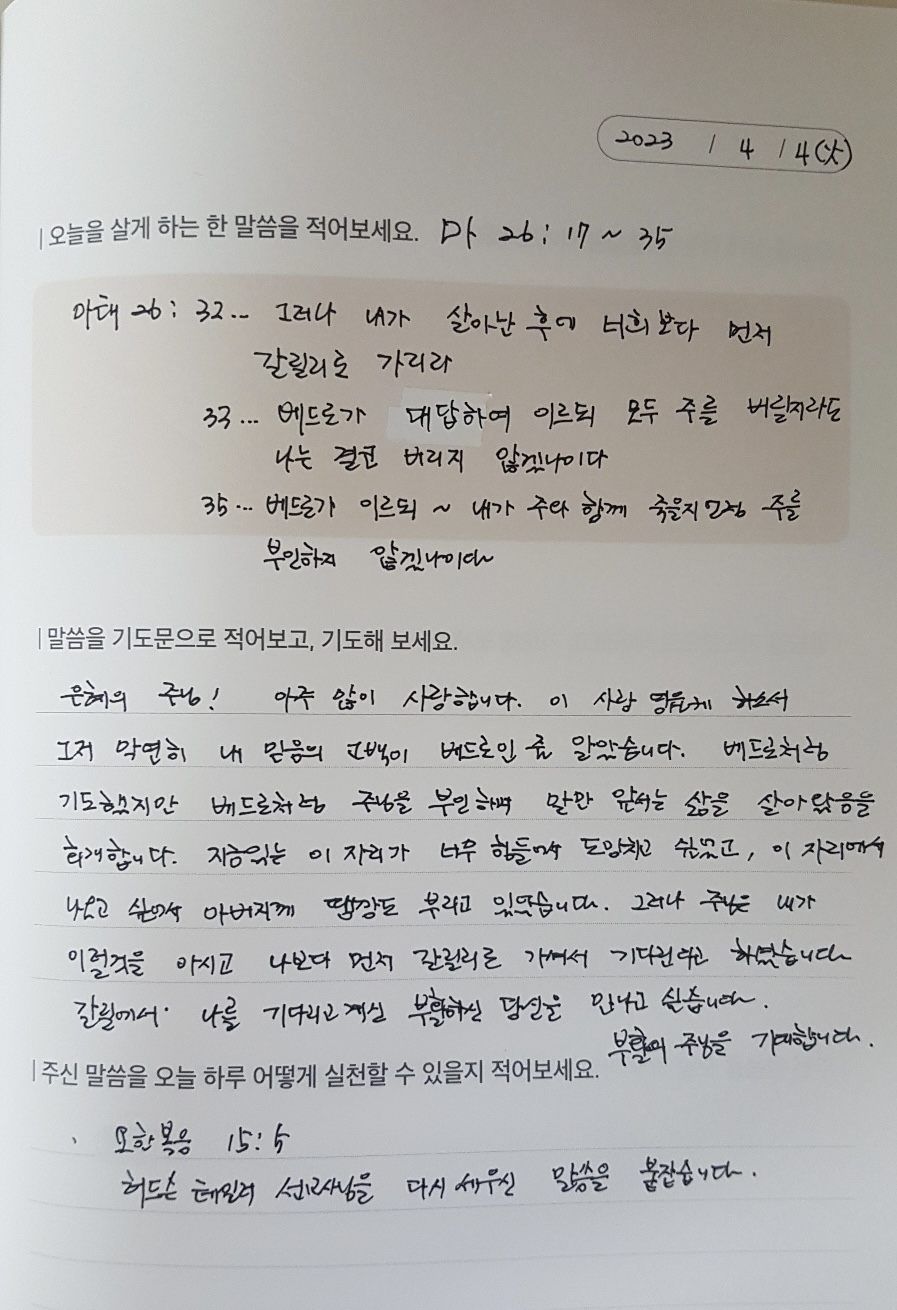 2023 / 4 / 4(火)
오늘을 살게 하는 한 말씀을 적어보세요. 마 26 : 17 ~ 35
마태 26 : 32... 그러나 내가 살아난 후에 너희보다 먼저
갈릴리로 가리라
33... 베드로가 대답하여 이르되 모두 주를 버릴지라도
나는 결코 버리지 않겠나이다
35... 베드로가 이르되 ~ 내가 주와 함께 죽을지언정 주를
부인하지 않겠나이다
말씀을 기도문으로 적어보고, 기도해 보세요.
은혜의 주님! 아주 많이 사랑합니다. 이 사랑 하소서
그저 막연히 내 믿음의 고백이 베드로인 줄 알았습니다. 베드로처럼
기도했지만 베드로처럼 주님을 부인하며 말만 앞서는 삶을 살아왔음을
회개합니다. 지금있는 이 자리가 너무 힘들어서 도망치고 싶었고, 이 자리에서
낫고 싶어서 아버지께 땡깡도 부리고 있었습니다. 그러나 주님은 내가
이럴것을 아시고 나보다 먼저 갈릴리로 가셔서 기다린다고 하셨습니다
갈릴에서 나를 기다리고 계신 부활하신 당신을 만나고 싶습니다.
부활의 주님을 기대합니다.
주신 말씀을 오늘 하루 어떻게 실천할 수 있을지 적어보세요.
요한복음 15 : 5
허드슨 테일러 선교사님을 다시 세우신 말씀을 붙잡습니다.